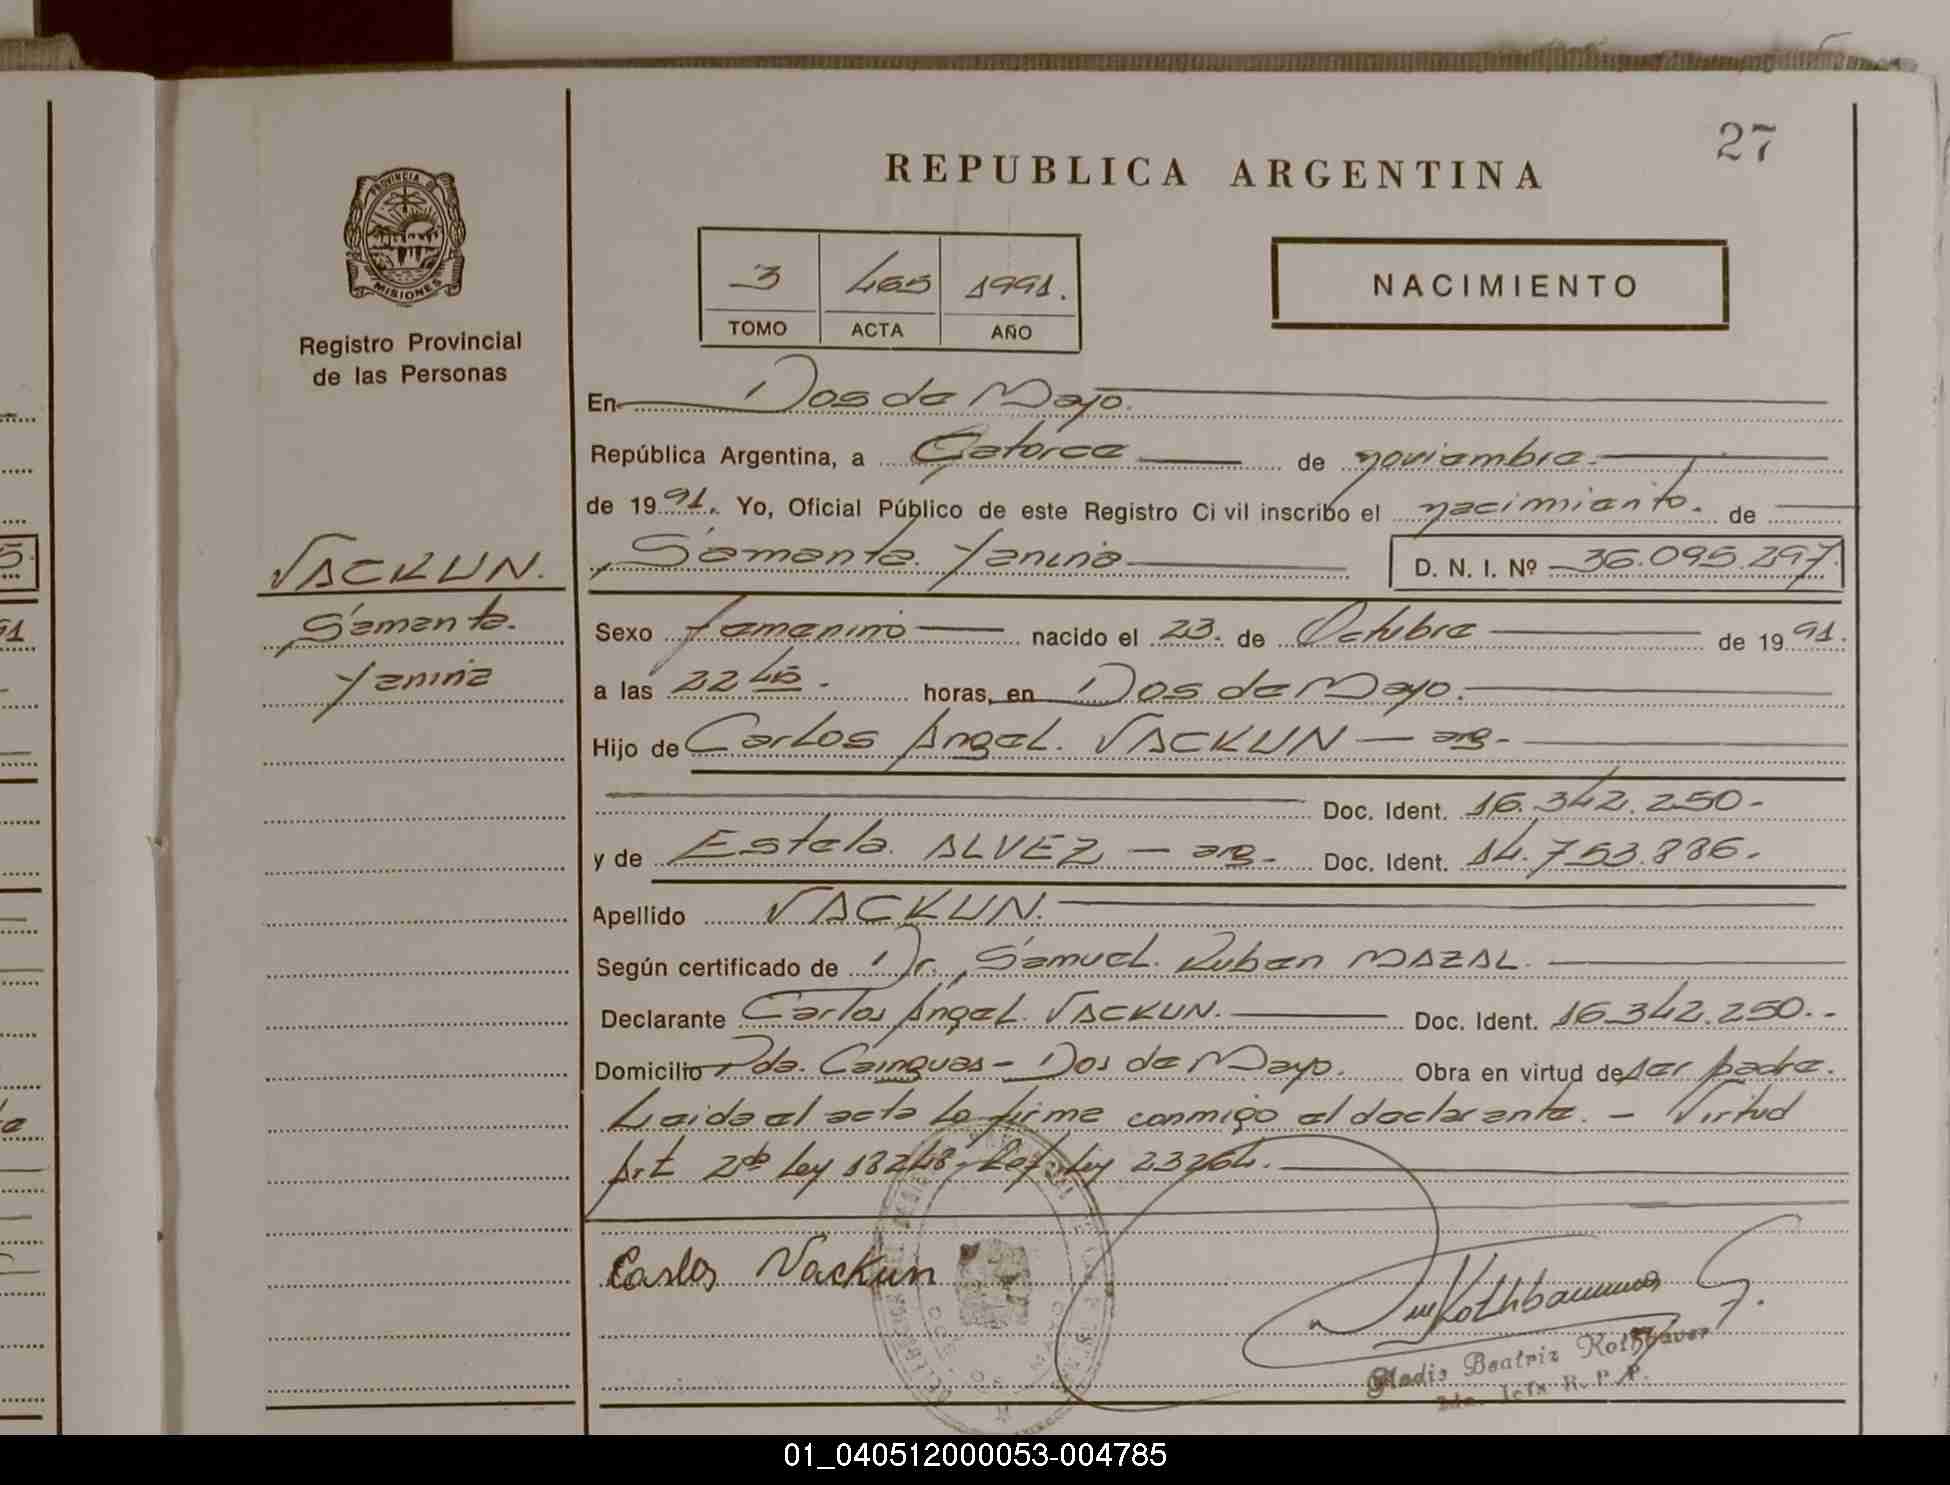 27
REPUBLICA ARGENTINA
PROVINCIA DE
MISIONES
Registro Provincial
de las Personas
3 465 1991.
TOMO ACTA AÑO
NACIMIENTO
En Dos de Mayo.
República Argentina, a Catorce de noviembre.
de 1991. Yo, Oficial Público de este Registro Civil inscribo el nacimiento. de
VACKUN.
Samanta
Yanina
Samanta Yanina D. N. I. Nº 36.095.297.
Sexo femenino nacido el 23. de Octubre de 1991.
a las 22 45. horas, en Dos de Mayo.
Hijo de Carlos Angel. VACKUN — arg.
Doc. Ident. 16.342.250-
y de Estela ALVEZ — arg. Doc. Ident. 14.753.886.
Apellido VACKUN.
Según certificado de Dr. Samuel Ruben MAZAL.
Declarante Carlos Angel VACKUN. Doc. Ident. 16.342.250.-
Domicilio Pda. Cainguas - Dos de Mayo. Obra en virtud de ser padre.
Leida el acta la firma conmigo el declarante. - Virtud
Art 2do Ley 18248. Ref. Ley 23264.
Carlos Vackun
Gladis Beatriz
R. P. P.
01_040512000053-004785